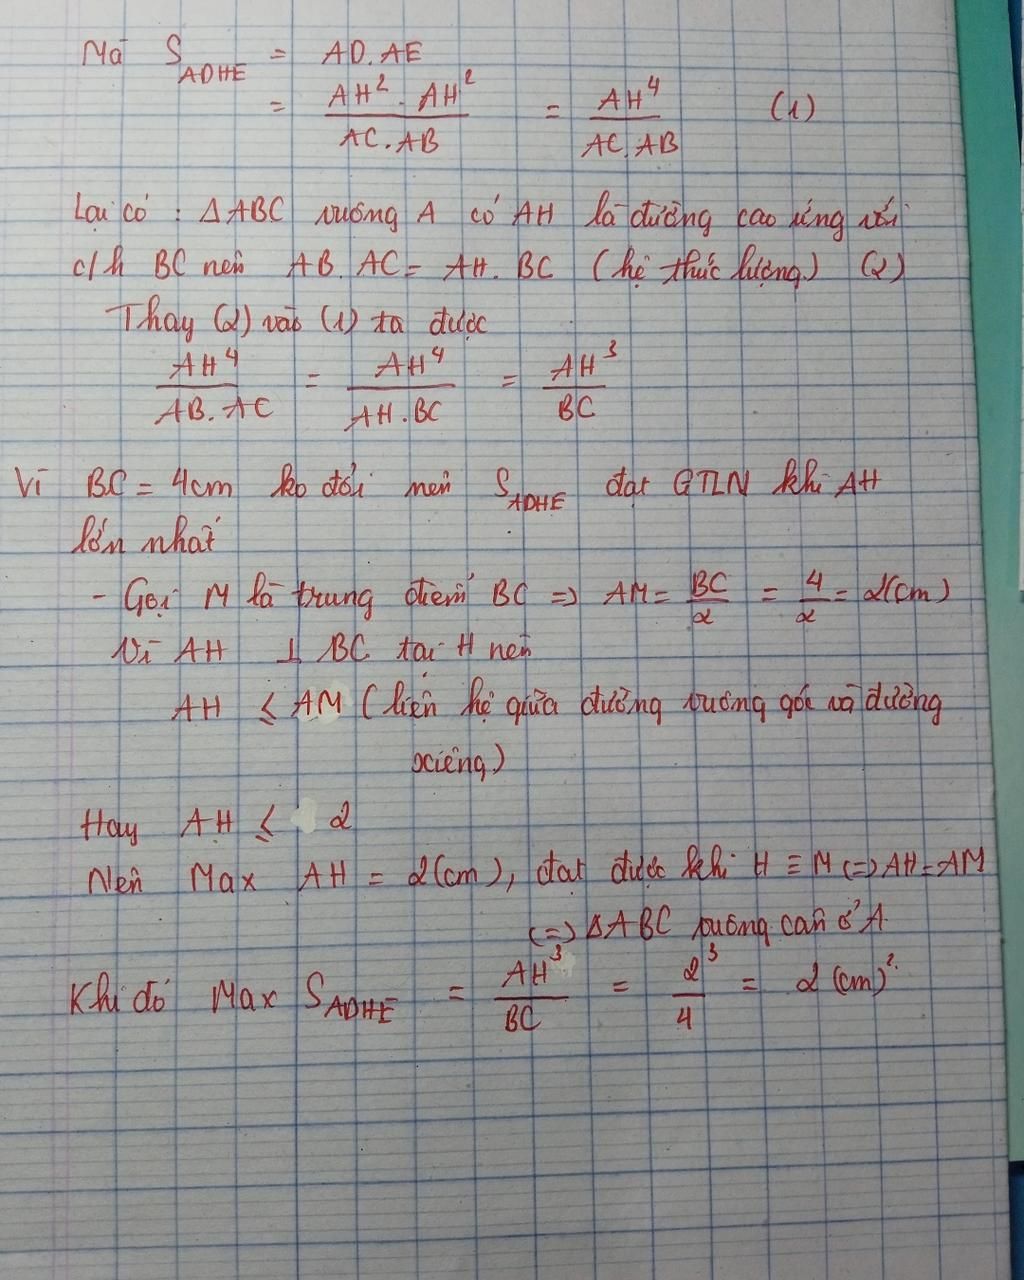 Mà S_ADHE = AD.AE
= AH². AH² / AC.AB = AH⁴ / AC.AB (1)
Lại có : ΔABC vuông A có AH là đường cao ứng với
c/h BC nên AB. AC = AH. BC (hệ thức lượng) (2)
Thay (2) vào (1) ta được
AH⁴ / AB. AC = AH⁴ / AH.BC = AH³ / BC
Vì BC = 4cm ko đổi nên S_ADHE đạt GTLN khi AH
lớn nhất
- Gọi M là trung điểm BC => AM = BC / 2 = 4 / 2 = 2(cm)
Vì AH ⊥ BC tại H nên
AH ≤ AM (liên hệ giữa đường vuông góc và đường
xiêng)
Hay AH ≤ 2
Nên Max AH = 2(cm), đạt được khi H ≡ M (=) AH = AM
(=) ΔABC vuông cân ở A.
Khi đó Max S_ADHE = AH³ / BC = 2³ / 4 = 2 (cm)².